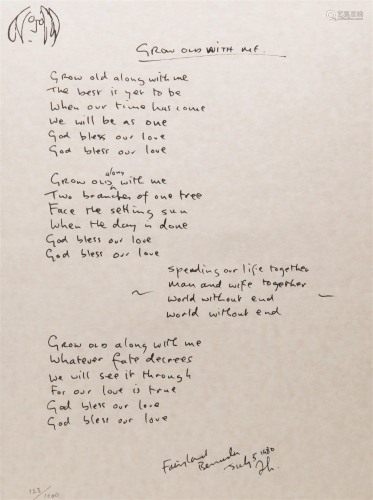 GROW OLD WITH ME.
Grow old along with me
The best is yet to be
When our time has come
We will be as one
God bless our love
God bless our love
along
Grow old with me
Two branches of one tree
Face the setting sun
When the day is done
God bless our love
God bless our love
Spending our life together
man and wife together
world without end
world without end
Grow old along with me
Whatever fate decrees
We will see it through
For our love is true
God bless our love
God bless our love
Fairyland
Bermuda July 5 1980